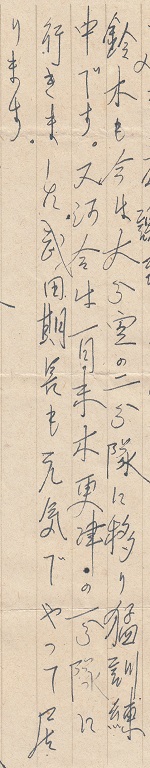 鈴木も今生大分空の二分隊に移り猛訓練
中です。又河合生一月末木更津の一分隊に
行きました武田期長も元気でやって居
ります。